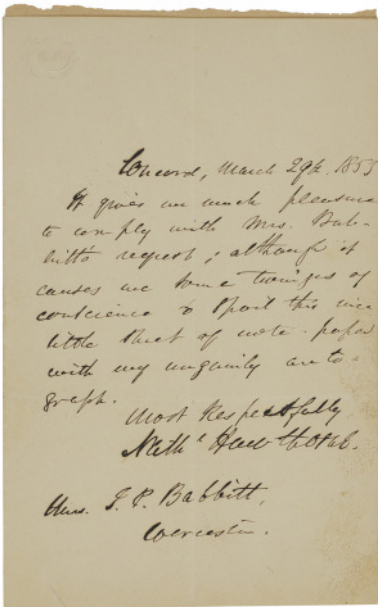 Concord, March 29th. 1853
It gives me much pleasure
to comply with Mrs. Bab-
bitt's request; although it
causes me some twinges of
conscience to spoil this nice
little sheet of note-paper
with my ungainly auto-
graph.
Most Respectfully
Nath'l Hawthorne.
Mrs. J. P. Babbitt,
Worcester.